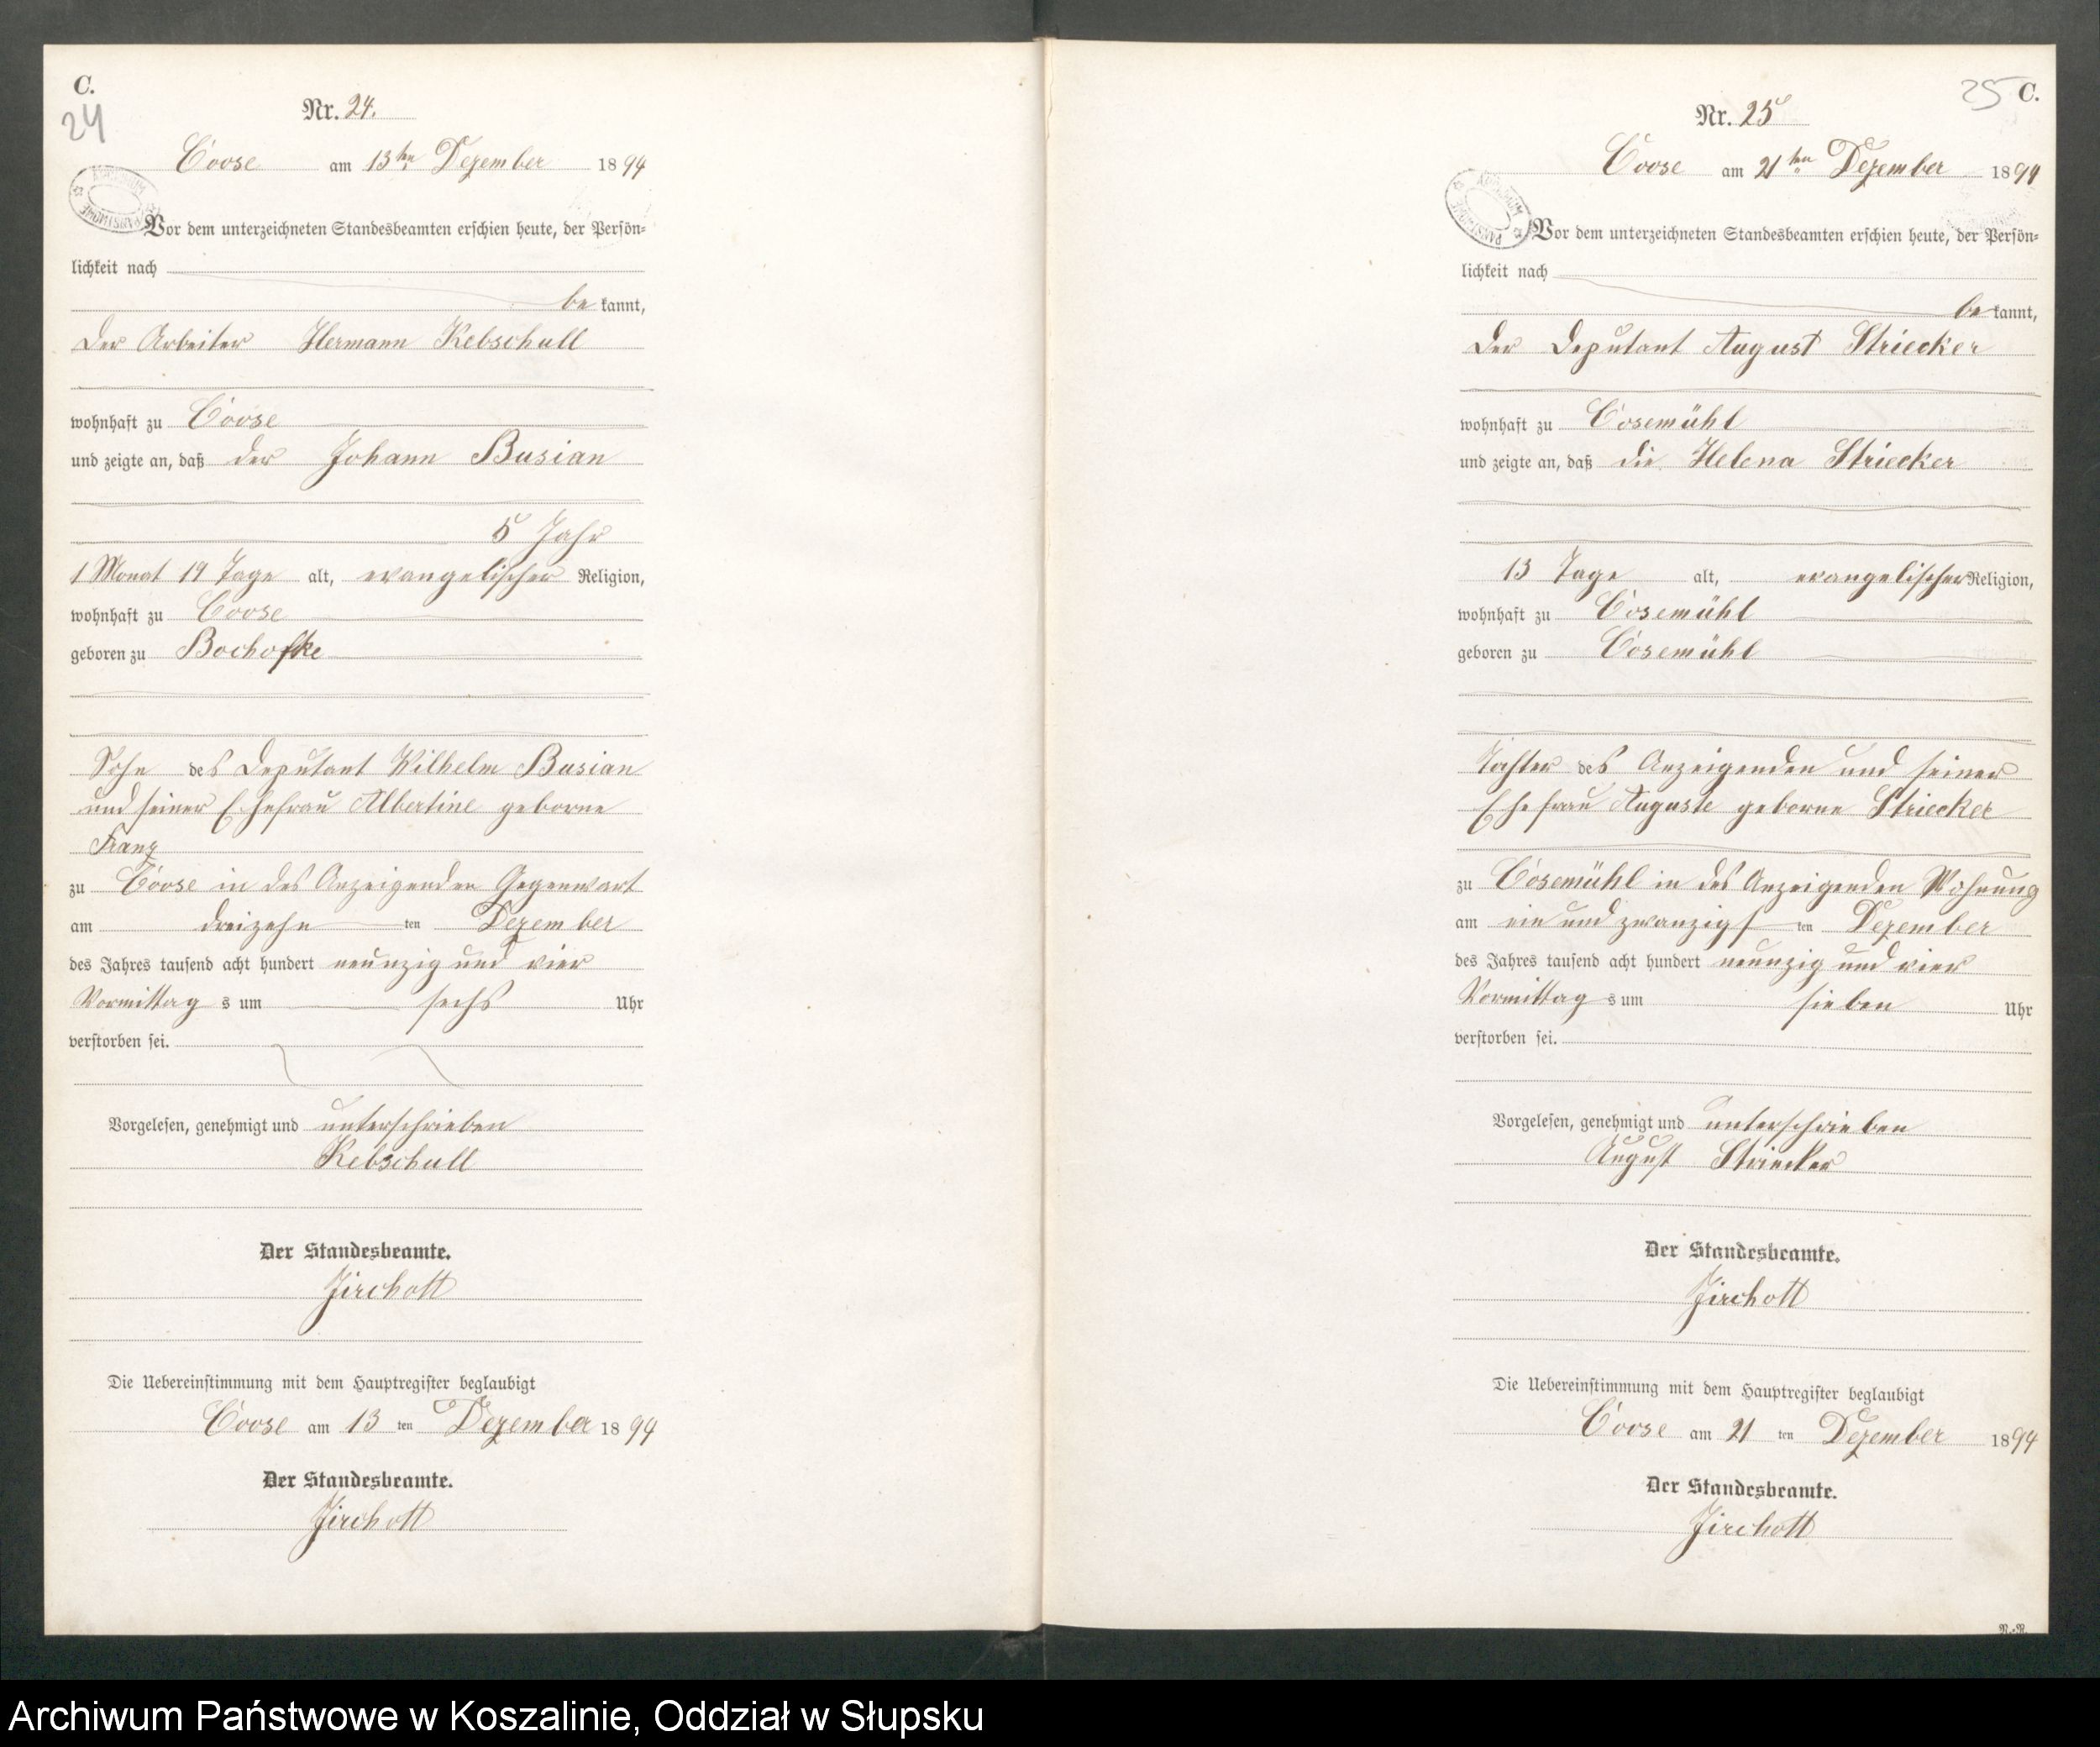 C.
24
Nr. 24.
Coose am 13ten Dezember 1894
Vor dem unterzeichneten Standesbeamten erschien heute, der Persön-
lichkeit nach
be kannt,
der Arbeiter Hermann Kebschull
wohnhaft zu Coose
und zeigte an, daß der Johann Busian
5 Jahr
1 Monat 19 Tage alt, evangelischer Religion,
wohnhaft zu Coose
geboren zu Bochofke
Sohn des Deputant Wilhelm Busian
und seiner Ehefrau Albertine geborne
Franz
zu Coose in des Anzeigenden Gegenwart
am dreizehn ten Dezember
des Jahres tausend acht hundert neunzig und vier
Vormittag s um sechs Uhr
verstorben sei.
Vorgelesen, genehmigt und unterschrieben
Kebschull
Der Standesbeamte.
Jirchott
Die Uebereinstimmung mit dem Hauptregister beglaubigt
Coose am 13 ten Dezember 1894
Der Standesbeamte.
Jirchott
25 C.
Nr. 25
Coose am 21ten Dezember 1894
Vor dem unterzeichneten Standesbeamten erschien heute, der Persön-
lichkeit nach
be kannt,
der Deputant August Striecker
wohnhaft zu Cosemühl
und zeigte an, daß die Helena Striecker
13 Tage alt, evangelischer Religion,
wohnhaft zu Cosemühl
geboren zu Cosemühl
Tochter des Anzeigenden und seiner
Ehefrau Auguste geborne Striecker
zu Cosemühl in des Anzeigenden Wohnung
am ein und zwanzigs ten Dezember
des Jahres tausend acht hundert neunzig und vier
Vormittag s um sieben Uhr
verstorben sei.
Vorgelesen, genehmigt und unterschrieben
August Striecker
Der Standesbeamte.
Jirchott
Die Uebereinstimmung mit dem Hauptregister beglaubigt
Coose am 21 ten Dezember 1894
Der Standesbeamte.
Jirchott
Archiwum Państwowe w Koszalinie, Oddział w Słupsku